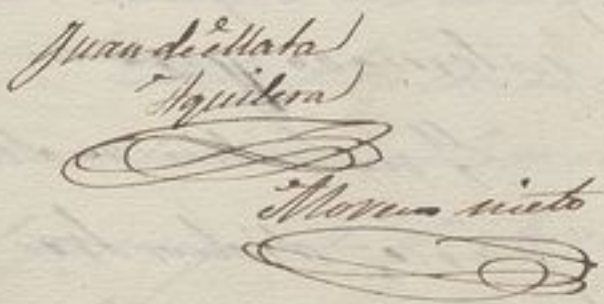 Juan de Mata
Aguilera
Moreno nieto